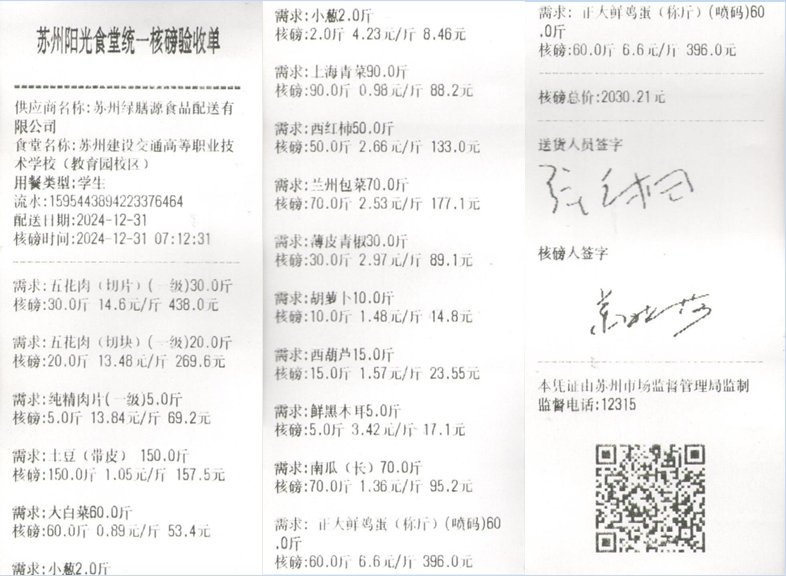 苏州阳光食堂统一核磅验收单
供应商名称:苏州绿膳源食品配送有
限公司
食堂名称:苏州建设交通高等职业技
术学校（教育园校区）
用餐类型:学生
流水:1595443894223376464
配送日期:2024-12-31
核磅时间:2024-12-31 07:12:31
需求:五花肉（切片）(一级)30.0斤
核磅:30.0斤 14.6元/斤 438.0元
需求:五花肉（切块）(一级)20.0斤
核磅:20.0斤 13.48元/斤 269.6元
需求:纯精肉片(一级)5.0斤
核磅:5.0斤 13.84元/斤 69.2元
需求:土豆（带皮） 150.0斤
核磅:150.0斤 1.05元/斤 157.5元
需求:大白菜60.0斤
核磅:60.0斤 0.89元/斤 53.4元
需求:小葱2.0斤
需求:小葱2.0斤
核磅:2.0斤 4.23元/斤 8.46元
需求:上海青菜90.0斤
核磅:90.0斤 0.98元/斤 88.2元
需求:西红柿50.0斤
核磅:50.0斤 2.66元/斤 133.0元
需求:兰州包菜70.0斤
核磅:70.0斤 2.53元/斤 177.1元
需求:薄皮青椒30.0斤
核磅:30.0斤 2.97元/斤 89.1元
需求:胡萝卜10.0斤
核磅:10.0斤 1.48元/斤 14.8元
需求:西葫芦15.0斤
核磅:15.0斤 1.57元/斤 23.55元
需求:鲜黑木耳5.0斤
核磅:5.0斤 3.42元/斤 17.1元
需求:南瓜（长）70.0斤
核磅:70.0斤 1.36元/斤 95.2元
需求: 正大鲜鸡蛋（称斤）(喷码)60
.0斤
核磅:60.0斤 6.6元/斤 396.0元
需求: 正大鲜鸡蛋（称斤）(喷码)60
.0斤
核磅:60.0斤 6.6元/斤 396.0元
核磅总价:2030.21元
送货人员签字
核磅人签字
本凭证由苏州市场监督管理局监制
监督电话:12315